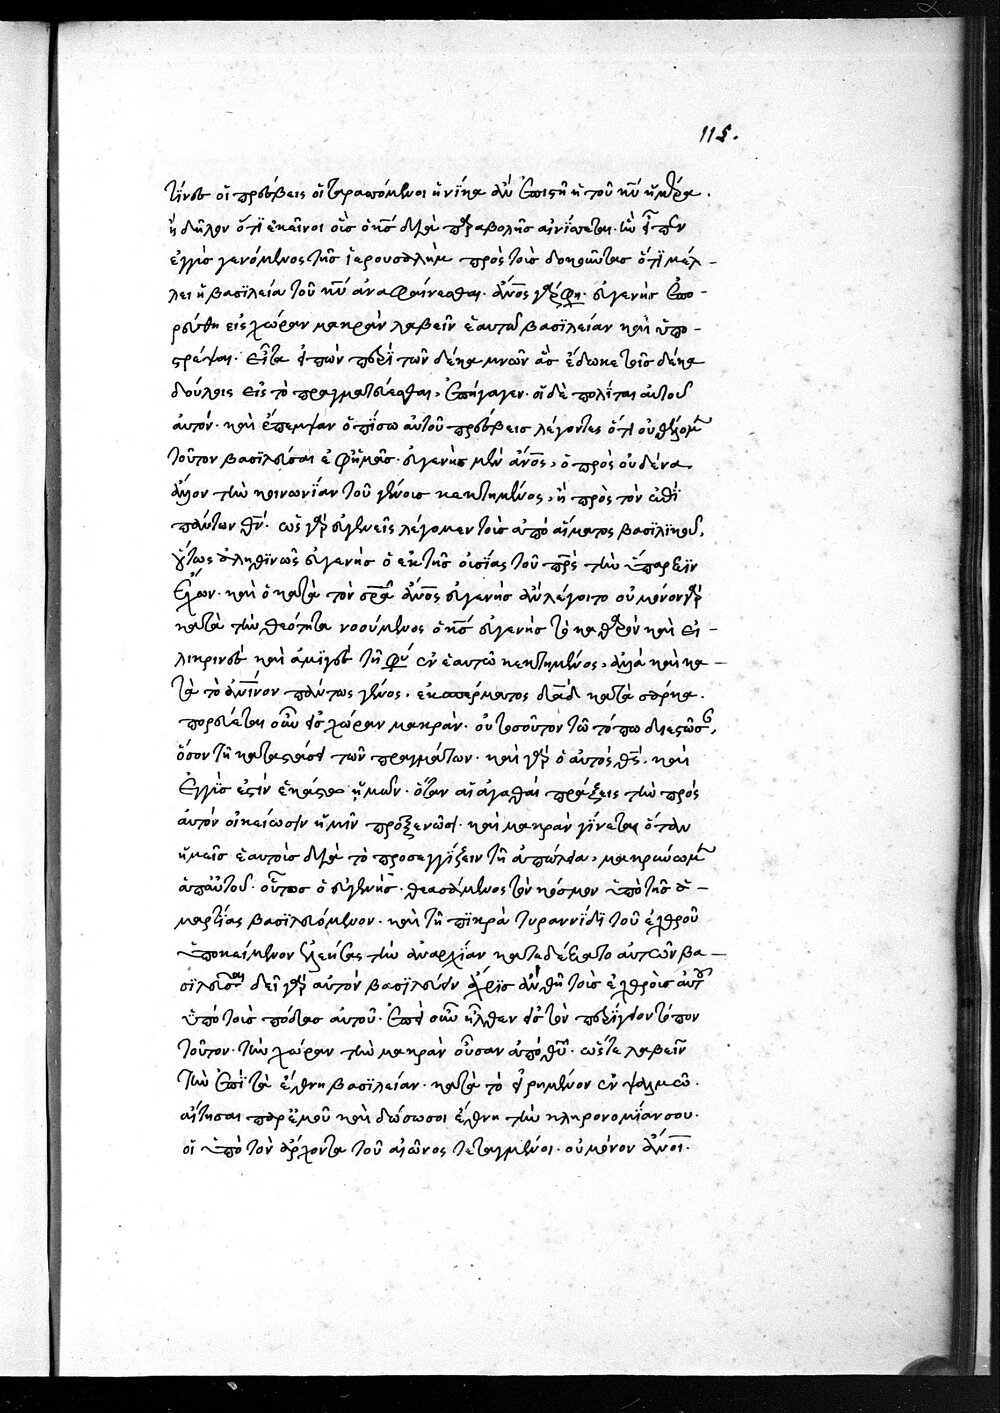 115.
τίνες οἱ πρέσβεις οἱ ταραττόμενοι ἡνίκα ἂν ἐπιστῆ ἡ τοῦ κυ ἡμέρα.
ἢ δῆλον ὅτι ἐκεῖνοι οὓς ὁ κς διὰ παραβολῆς αἰνίττεται. τῶ εἰπεῖν
ἐγγὺς γενόμενος τῆς ἱερουσαλὴμ πρὸς τοὺς δοκοῦντας ὅτι μέλ-
λει ἡ βασιλεία τοῦ κυ ἀναφαίνεσθαι. ἄνος γάρ φη. εὐγενὴς ἐπο-
ρεύθη εἰς χώραν μακρὰν λαβεῖν ἑαυτῶ βασιλείαν καὶ ὑπο-
στρέψαι. εἶτα εἰπὼν περὶ τῶν δέκα μνῶν ἃς ἔδωκε τοῖς δέκα
δούλοις εἰς τὸ πραγματεύεσθαι, ἐπήγαγεν. οἱ δὲ πολῖται αὐτοῦ
αὐτόν. καὶ ἔπεμψαν ὀπίσω αὐτοῦ πρέσβεις λέγοντες ὅτι οὐ θέλομεν
τοῦτον βασιλεῦσαι ἐφ' ἡμᾶς. εὐγενὴς μὲν ἄνος, ὁ πρὸς οὐδένα
ἄλλον τὴν κοινωνίαν τοῦ γένους κεκτημένος, ἢ πρὸς τὸν ἐπὶ
πάντων θν. ὡς γὰρ εὐγενεῖς λέγομεν τοὺς ἀπὸ αἵματος βασιλικοῦ,
οὕτως ἀληθινῶς εὐγενὴς ὁ ἐκ τῆς οὐσίας τοῦ πρς τὴν ὕπαρξιν
ἔχων. καὶ ὁ κατὰ τὸν σρα ἄνος εὐγενὴς ἂν λέγοιτο οὐ μόνον γὰρ
κατὰ τὴν θεότητα νοούμενος ὁ κς εὐγενὴς τὸ καθαρὸν καὶ εἰ-
λικρινὲς καὶ ἀμιγὲς τῆ φυ ἐν ἑαυτῶ κεκτημένος, ἀλλὰ καὶ κα-
τὰ τὸ ἀνινον πάντως γένος, ἐκ σπέρματος δαδ κατὰ σάρκα.
πορεύεται οὖν εἰς χώραν μακρὰν. οὐ τοσοῦτον τῶ τόπω διεστῶσαν,
ὅσον τῆ καταστάσει τῶν πραγμάτων. καὶ γὰρ ὁ αὐτὸς θς. καὶ
ἐγγὺς ἐστὶν ἑκάστω ἡμῶν. ὅταν αἱ ἀγαθαὶ πράξεις τὴν πρὸς
αὐτὸν οἰκείωσιν ἡμῖν προξενῶσι. καὶ μακρὰν γίνεται ὅταν
ἡμεῖς ἑαυτοὺς διὰ τὸ προσεγγίζειν τῆ ἀπωλεία, μακρύνωμεν
ἀπ' αὐτοῦ. οὕτως ὁ εὐγενὴς. θεασάμενος τὸν κόσμον ὑπὸ τῆς ἁ-
μαρτίας βασιλευόμενον. καὶ τῆ πικρᾶ τυραννίδι τοῦ ἐχθροῦ
ὑποκείμενον ἐλεήσας τὴν ἀναρχίαν κατεδέξατο αὐτῶν βα-
σιλεῦσαι δεῖ γὰρ αὐτὸν βασιλεύειν ἄχρις ἂν θῆ τοὺς ἐχθροὺς αὐτοῦ
ὑπὸ τοὺς πόδας αὐτοῦ. ἐπεὶ οὖν ἦλθεν εἰς τὸν περίγειον τόπον
τοῦτον. τὴν χώραν τὴν μακρὰν οὖσαν ἀπὸ θυ. ὥστε λαβεῖν
τὴν ἐπὶ τὰ ἔθνη βασιλείαν. κατὰ τὸ εἰρημένον ἐν ψαλμῶ.
αἴτησαι παρ' ἐμοῦ καὶ δώσω σοι ἔθνη τὴν κληρονομίαν σου.
οἱ ὑπὸ τὸν ἄρχοντα τοῦ αἰῶνος τεταγμένοι. οὐ μόνον ἄνοι.